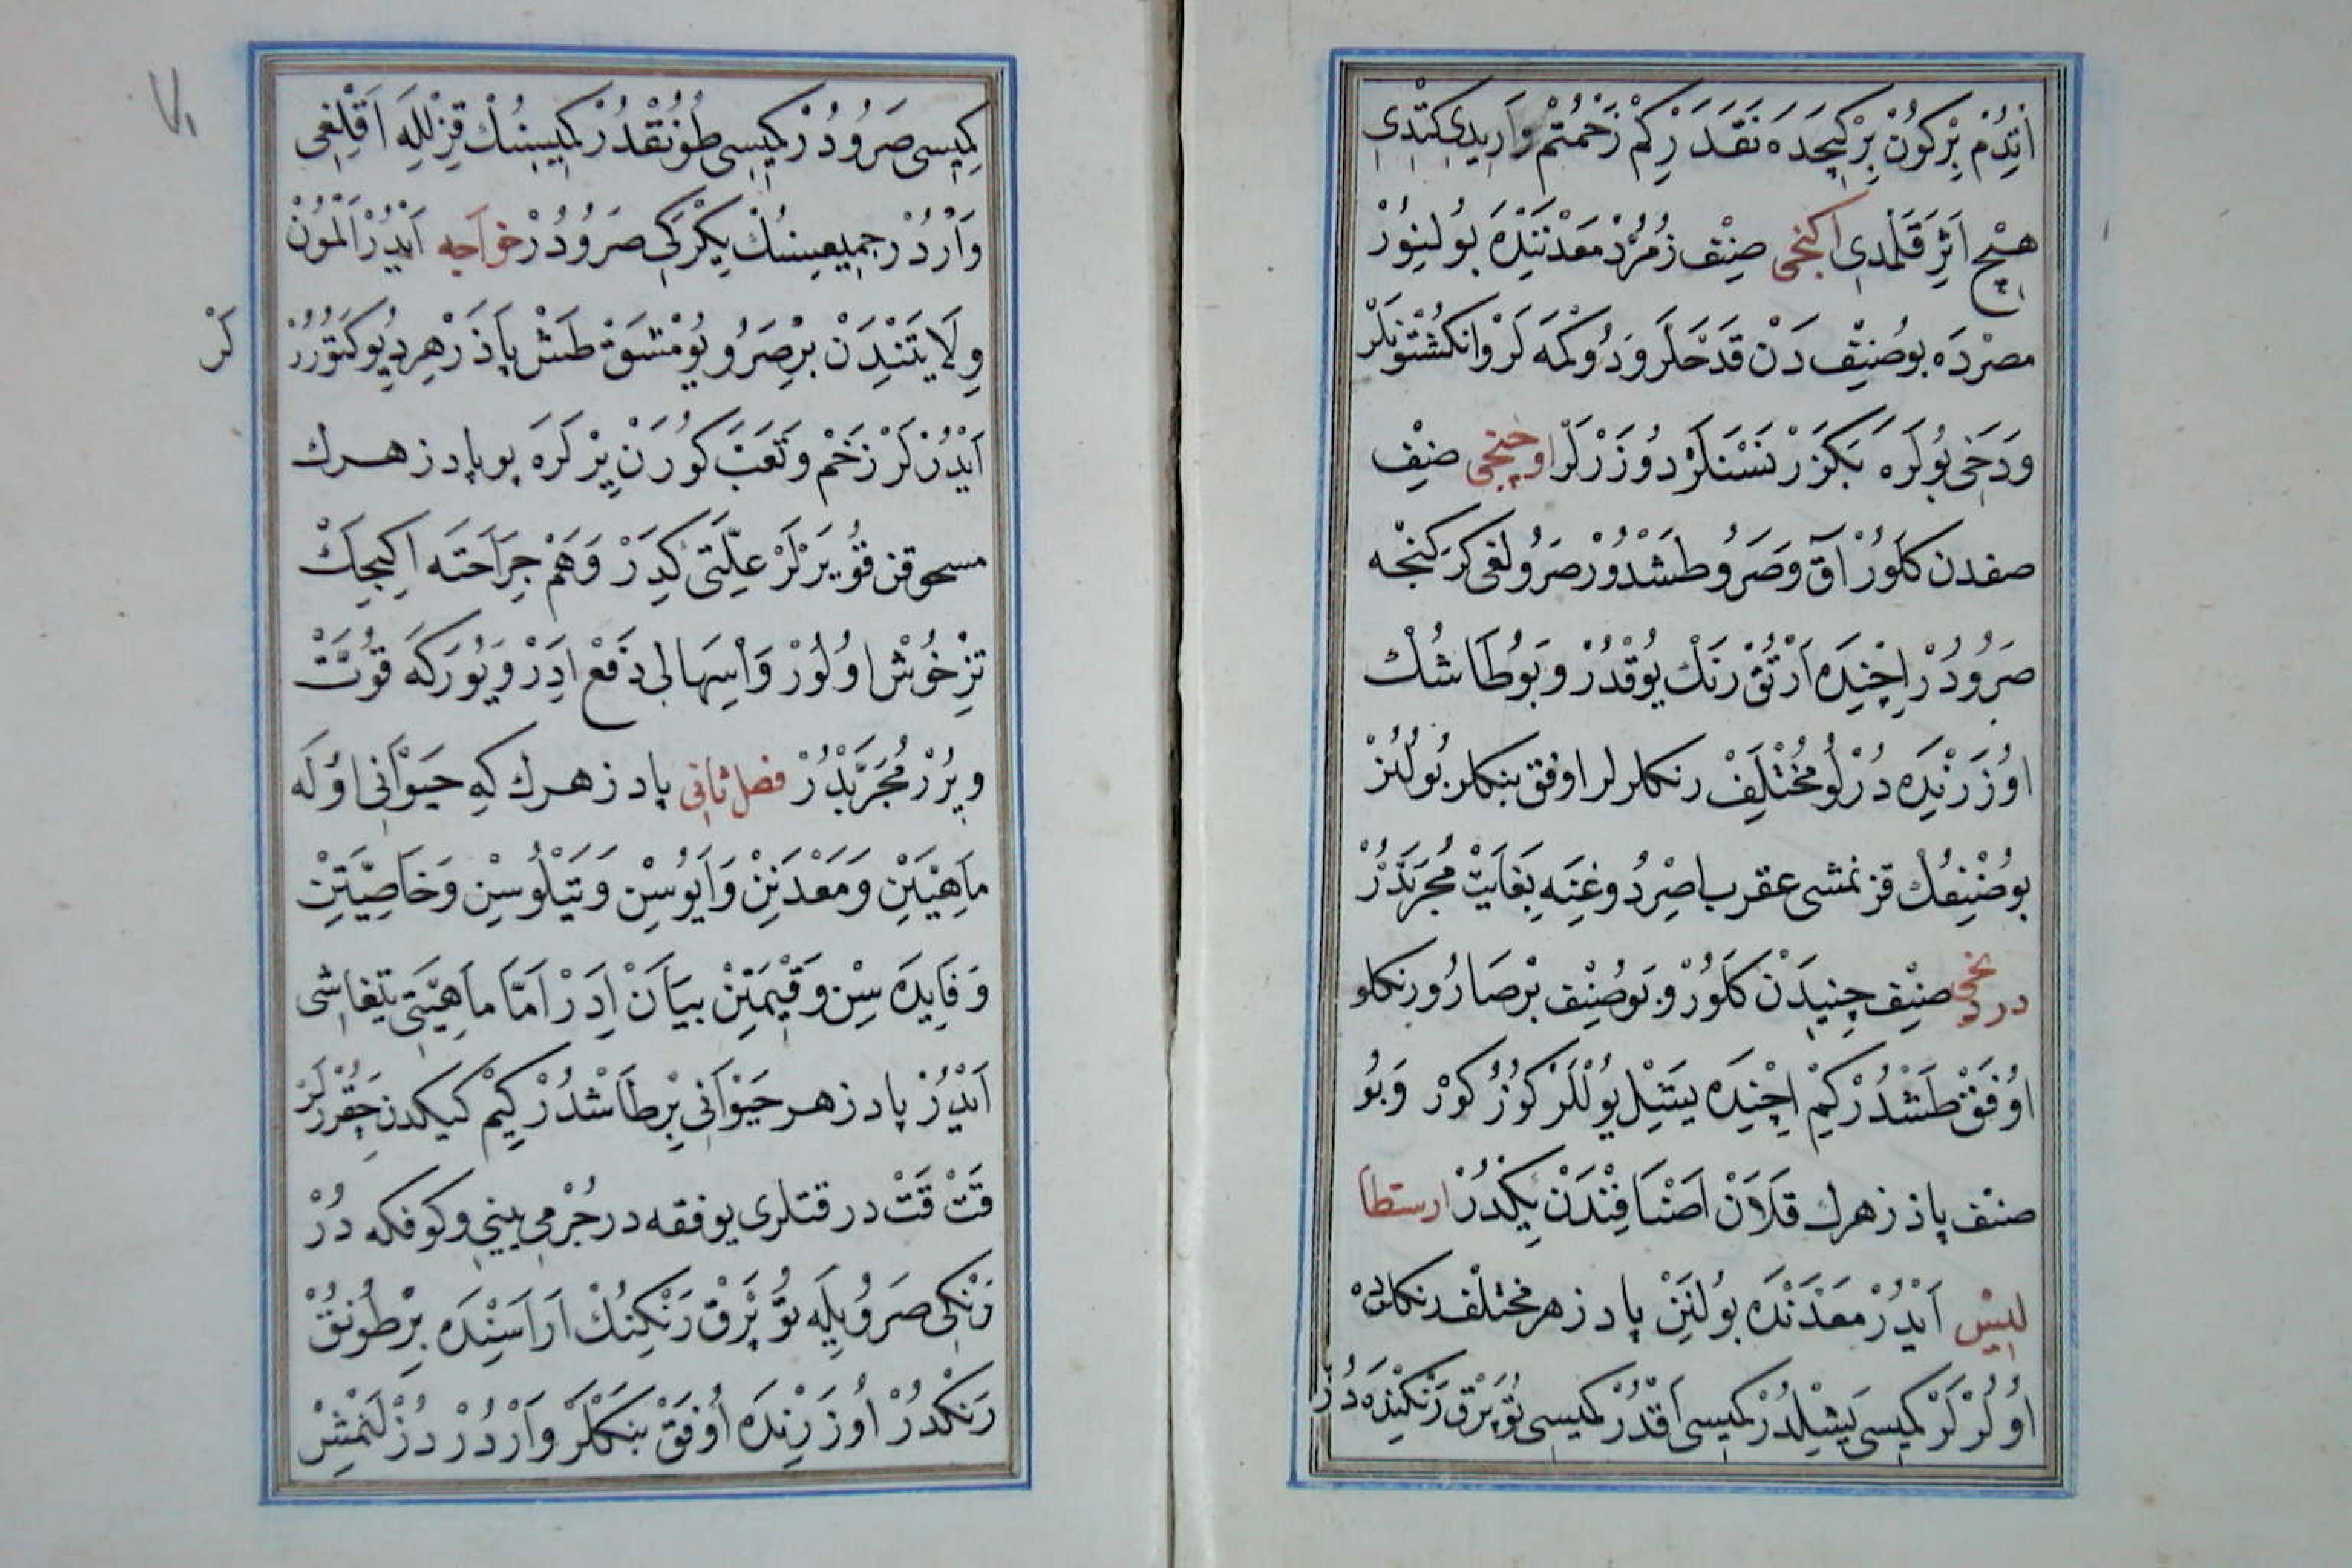 اَتِدُمْ بِرْ كُونْ بِرْ كِيجَدَه نَقَدَرْ كِمْ زَحْمُتُمْ وَارِيدِى كِتْدِى
هِيْچ اَثَرْ قَلْمَدِى اكنجى صِنِفْ زُمُرُّدْ مَعْدَنِنْدَه بُولِنُورْ
مِصْرْدَه بو صُنِفْ دَنْ قَدَحْلَرْ وَ دُوكْمَه لَرْ وانكُشْتُونَلَرْ
وَدَخِى بُولَرَه بَكْزَرْ نَسْنَلَرْ دُوزَرْلَرْ اوچنجى صِنِفْ
صفدن كَلُورْ آقْ وَ صَرُو طَشْدُورْ صَرُولغى كركنجه
صَرُودُرْ اِچِنْدَه اَرْتُقْ رَنْك يُوقْدُرْ وَ بُو طَاشُكْ
اوُزَرِنْدَه دُرْلُو مُخْتَلِفْ رنكلرلر اوفق بنكلر بُولُنُرْ
بو صُنْفِكْ قزنمشى عقرب اصِرْدُوغِنَه بَغَايَتْ مُجَرَّبْدُرْ
دردنجى صِنِفْ چِنْدَنْ كَلُورْ وَ بُو صُنِفْ بِرْ صَارُو رنكلو
اوُفَقْ طَشْدُرْ كِيمْ اِچِنْدَه يَشِيلْ يُوللَرْ كُوزُكُورْ وَ بُو
صنف پاذزهرك قَلاَنْ اَصْنَافِنْدَنْ يِكْدُرْ ارسطا
ليسْ اَيْدُرْ مَعْدَنْدَه بُولُنَنْ پادزهر مختلف رنكلرده
اوُلُرْلَرْ كِمِيسِى يَشِيلْدُرْ كِمِيسِى اَقْدُرْ كِمِيسِى تُوپْرَقْ رَنْكِنْدَه دُرْ
كِمِيسِى صَرُودُرْ كِمِيسِى طُونُقْدُرْ كِمِيسِنُكْ قِزِللَه اَقْلِغِى
وَارْدُرْ جَمِيعِسِنُكْ يِكْرَكِى صَرُودُرْ خواجه اَيْدُرْ اَلْمُونْ
وِلاَيَتِنْدَنْ بِرْ صَرُو يُومْشَقْ طَشْ پَاذَزْهِرْ دِيُو كَتُورُرْ
لَرْ
اَيْدُرْلَرْ زَخْم وَ تَعَبْ كُورَنْ يِرْلَرَه بو پادزهرك
مسحوقن قُويَرْلَرْ عِلَّتِى كِدَرْ وَ هَمْ جِرَاحَتَه اكيجك
تِزْ خُوشْ اوُلُورْ وَ اسِهالى دَفْع اِدَرْ وَ يُورَكَه قُوَّتْ
وِيرُرْ مُجَرَّبْدُرْ فصل ثانى پادزهرك كِه حَيَوَانِى اوُلَه
مَاهِيَتِنْ وَ مَعْدَنِنْ وَ اَيُوسِنْ وَ تَيَلُوسِنْ وَ خَاصِيَّتِنْ
وَ فَايِدَه سِنْ وَ قِيْمَتِنْ بَيَانْ اِدَرْ اَمَّا مَاهِيَّتِى تيفاشى
اَيْدُرْ پادزهر حَيَوَانِى بِرْ طَاشْدُرْ كِيمْ كيكدن چِقَرُرْلَرْ
قَتْ قَتْ در قتلرى يوفقه در جُرْمِى يينى وكوفكه دُرْ
رَنْكِى صَرُويِلَه تُوپْرَقْ رَنْكِنُكْ اَرَاسِنْدَه بِرْ طُونُقْ
رَنْكْدُرْ اُوزَرِنْدَه اُوفَقْ بنكلَرْ وَارْدُرْ دُزْلَنْمِشْ